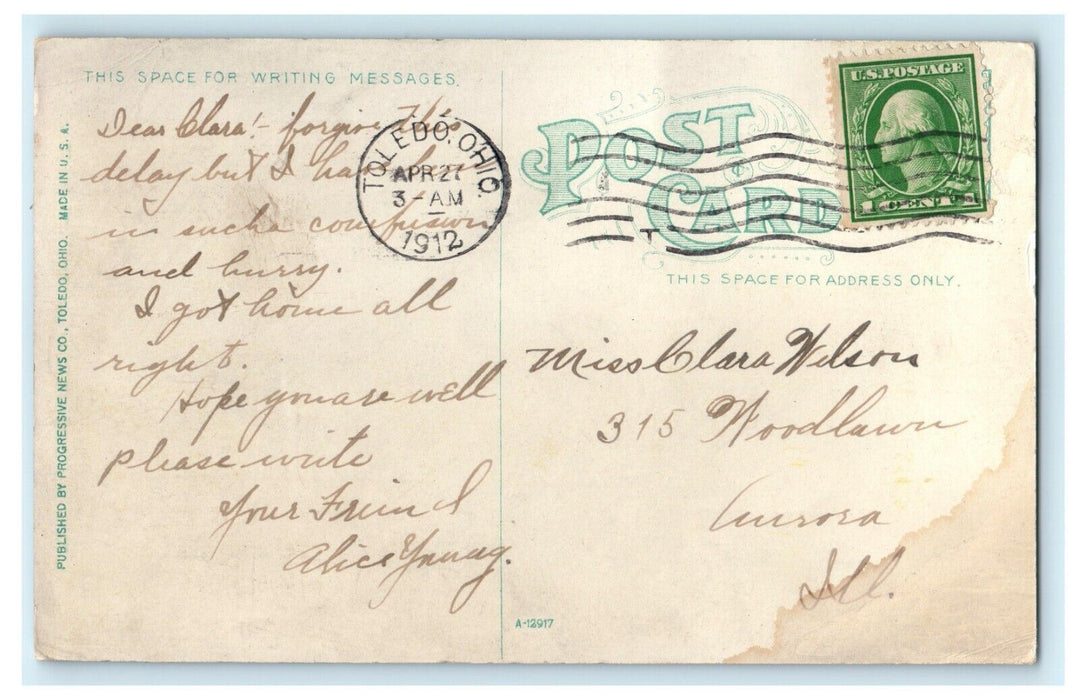 THIS SPACE FOR WRITING MESSAGES.
Dear Clara:- forgive this
delay but I have been
in such a confusion
and hurry.
I got home all
right.
Hope you are well
please write
Your Friend
Alice Young.
PUBLISHED BY PROGRESSIVE NEWS CO., TOLEDO, OHIO. MADE IN U.S.A.
TOLEDO, OHIO.
APR 27
3-AM
1912
POST
CARD
U.S. POSTAGE
1 CENT 1
THIS SPACE FOR ADDRESS ONLY.
Miss Clara Wilson
315 Woodlawn
Aurora
Ill.
A-12917